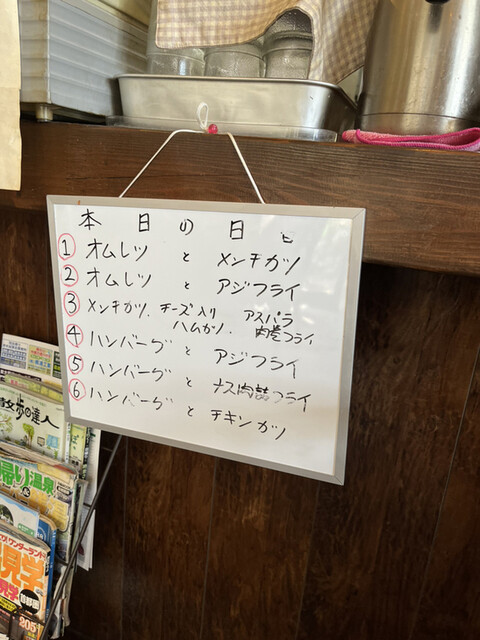 本日の日
① オムレツ と メンチカツ
② オムレツ と アジフライ
③ メンチカツ、チーズ入り アスパラ
ハムカツ、肉巻フライ
④ ハンバーグ と アジフライ
⑤ ハンバーグ と ナス肉詰フライ
⑥ ハンバーグ と チキンカツ
散歩の達人
帰り温泉
ワンダーランド
見学
205